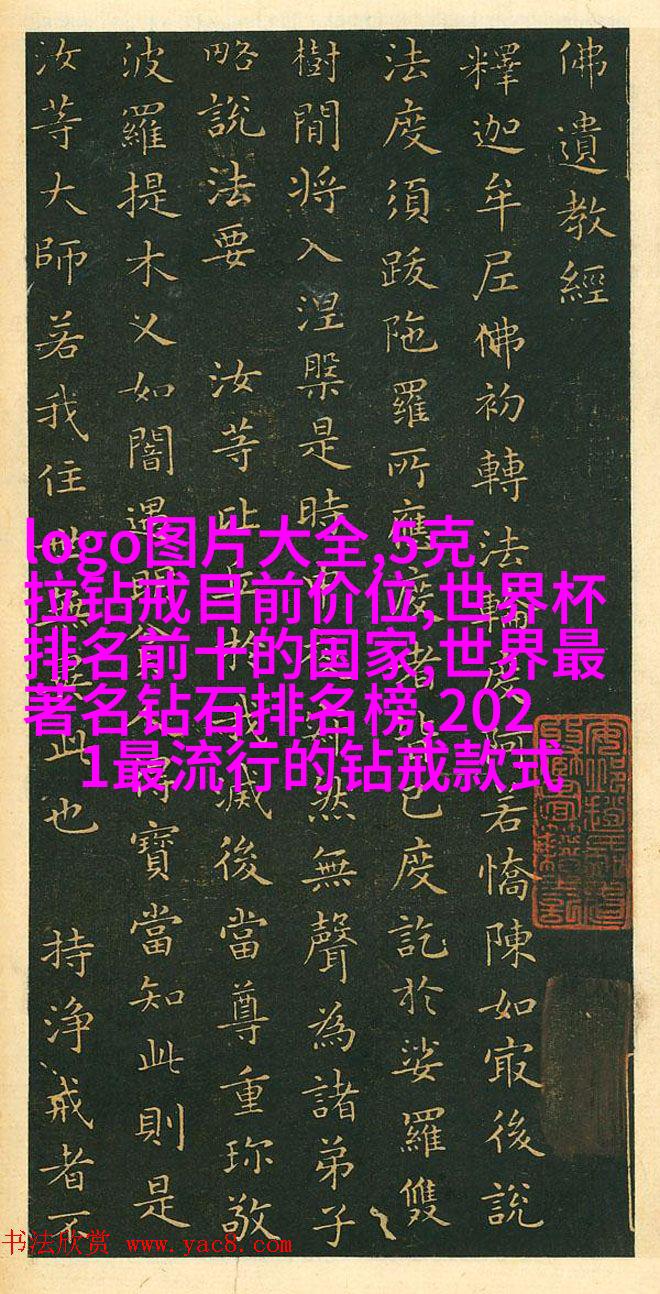 佛遺教經
釋迦牟尼佛初轉法輪度阿若憍陳如冣後說
法度須跋陁羅所應度者皆已度訖於娑羅雙
樹間将入涅槃是時中夜寂然無聲為諸弟子
略說法要 汝等比丘於我滅後當尊重珎敬
波羅提木叉如闇遇明貧人得寶當知此則是
汝等大師若我住世無異此也 持浄戒者不
logo图片大全,5克
拉钻戒目前价位,世界杯
排名前十的国家,世界最
著名钻石排名榜,202
1最流行的钻戒款式
书法欣赏 www.yac8.com